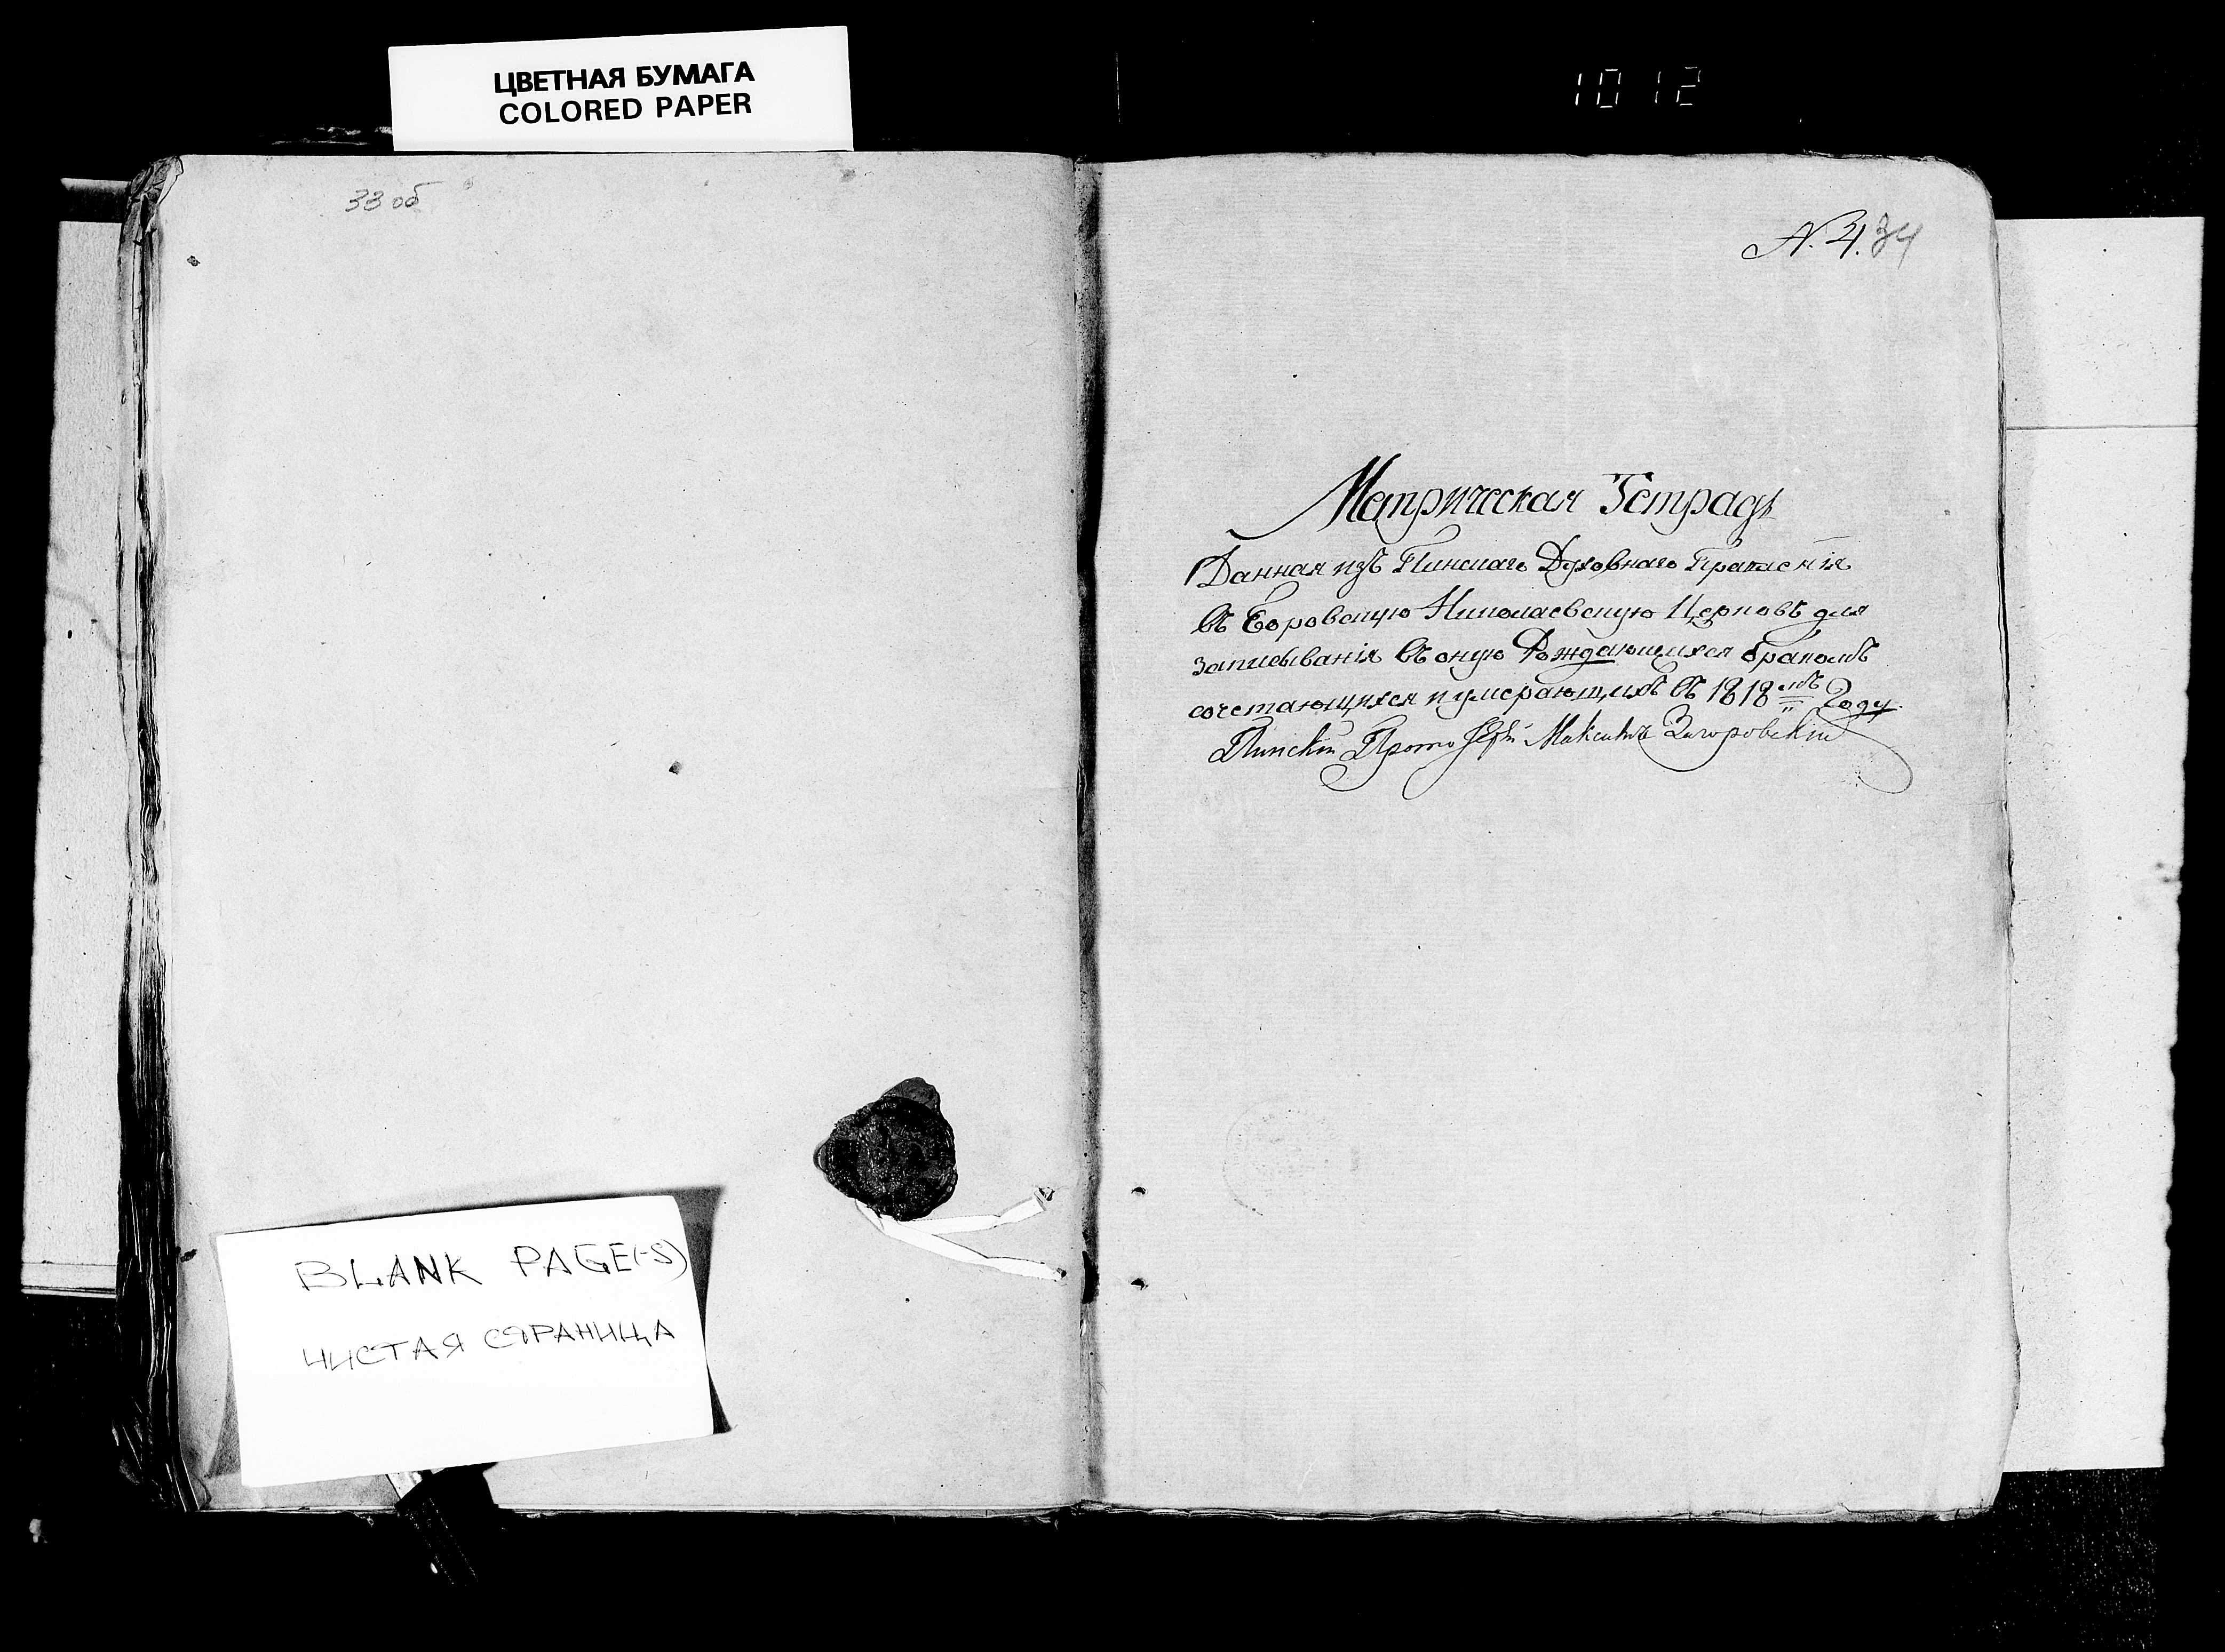 ЦВЕТНАЯ БУМАГА
COLORED PAPER
1012
33 об
N. 4. 34
Метрическая Тетрадь
Данная изъ Пинскаго Духовнаго Правленія
въ Боровскую Николаевскую Церковь для
записыванія въ оную Рождающихся бракомъ
сочетающихся и умерающихъ въ 1818мъ Году
Пинскій Прото Іерй Максимъ Загоровскій
BLANK PAGE(-S)
ЧИСТАЯ СТРАНИЦА